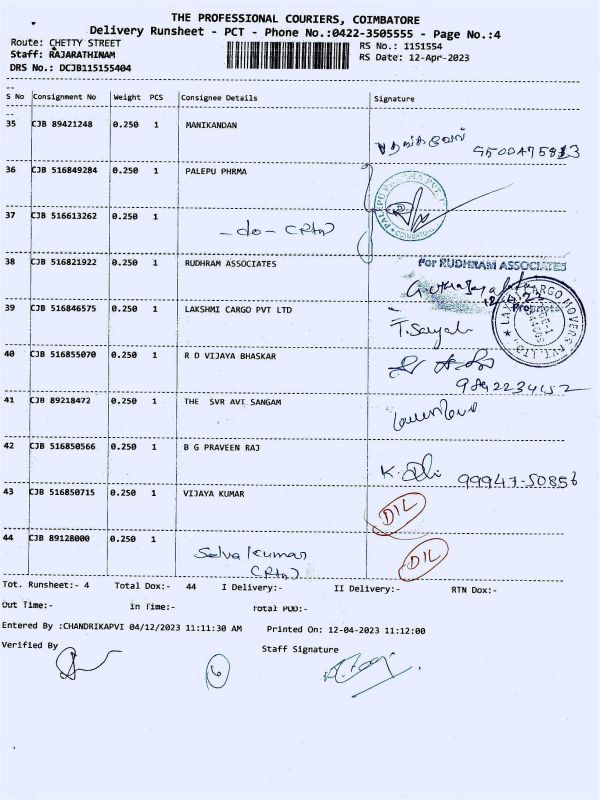 THE PROFESSIONAL COURIERS, COIMBATORE
Delivery Runsheet - PCT - Phone No.:0422-3505555 - Page No.:4
Route: CHETTY STREET RS No.: 1151554
Staff: RAJARATHINAM RS Date: 12-Apr-2023
DRS No.: DCJB115155404
S No Consignment No Weight PCS Consignee Details Signature
35 CJB 89421248 0.250 1 MANIKANDAN
36 CJB 516849284 0.250 1 PALEPU PHRMA
37 CJB 516613262 0.250 1 -do-
38 CJB 516821922 0.250 1 RUDHRAM ASSOCIATES For RUDHRAM ASSOCIATES
39 CJB 516846575 0.250 1 LAKSHMI CARGO PVT LTD
40 CJB 516855070 0.250 1 R D VIJAYA BHASKAR
41 CJB 89218472 0.250 1 THE SVR AVI SANGAM
42 CJB 516850566 0.250 1 B G PRAVEEN RAJ 99947-50856
43 CJB 516850715 0.250 1 VIJAYA KUMAR D/L
44 CJB 89128000 0.250 1 Selvakumar D/L
Tot. Runsheet:- 4 Total Dox:- 44 I Delivery:- II Delivery:- RTN Dox:-
Out Time:- In Time:- Total POD:-
Entered By :CHANDRIKAPVI 04/12/2023 11:11:30 AM Printed On: 12-04-2023 11:12:00
Verified By Staff Signature
6